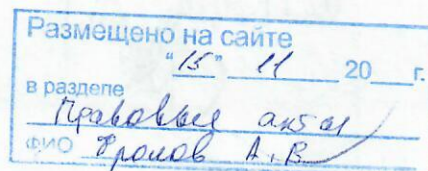 Размещено на сайте
"15" 11 20___г.
в разделе
Правовые акты
ФИО Фролов А.В.